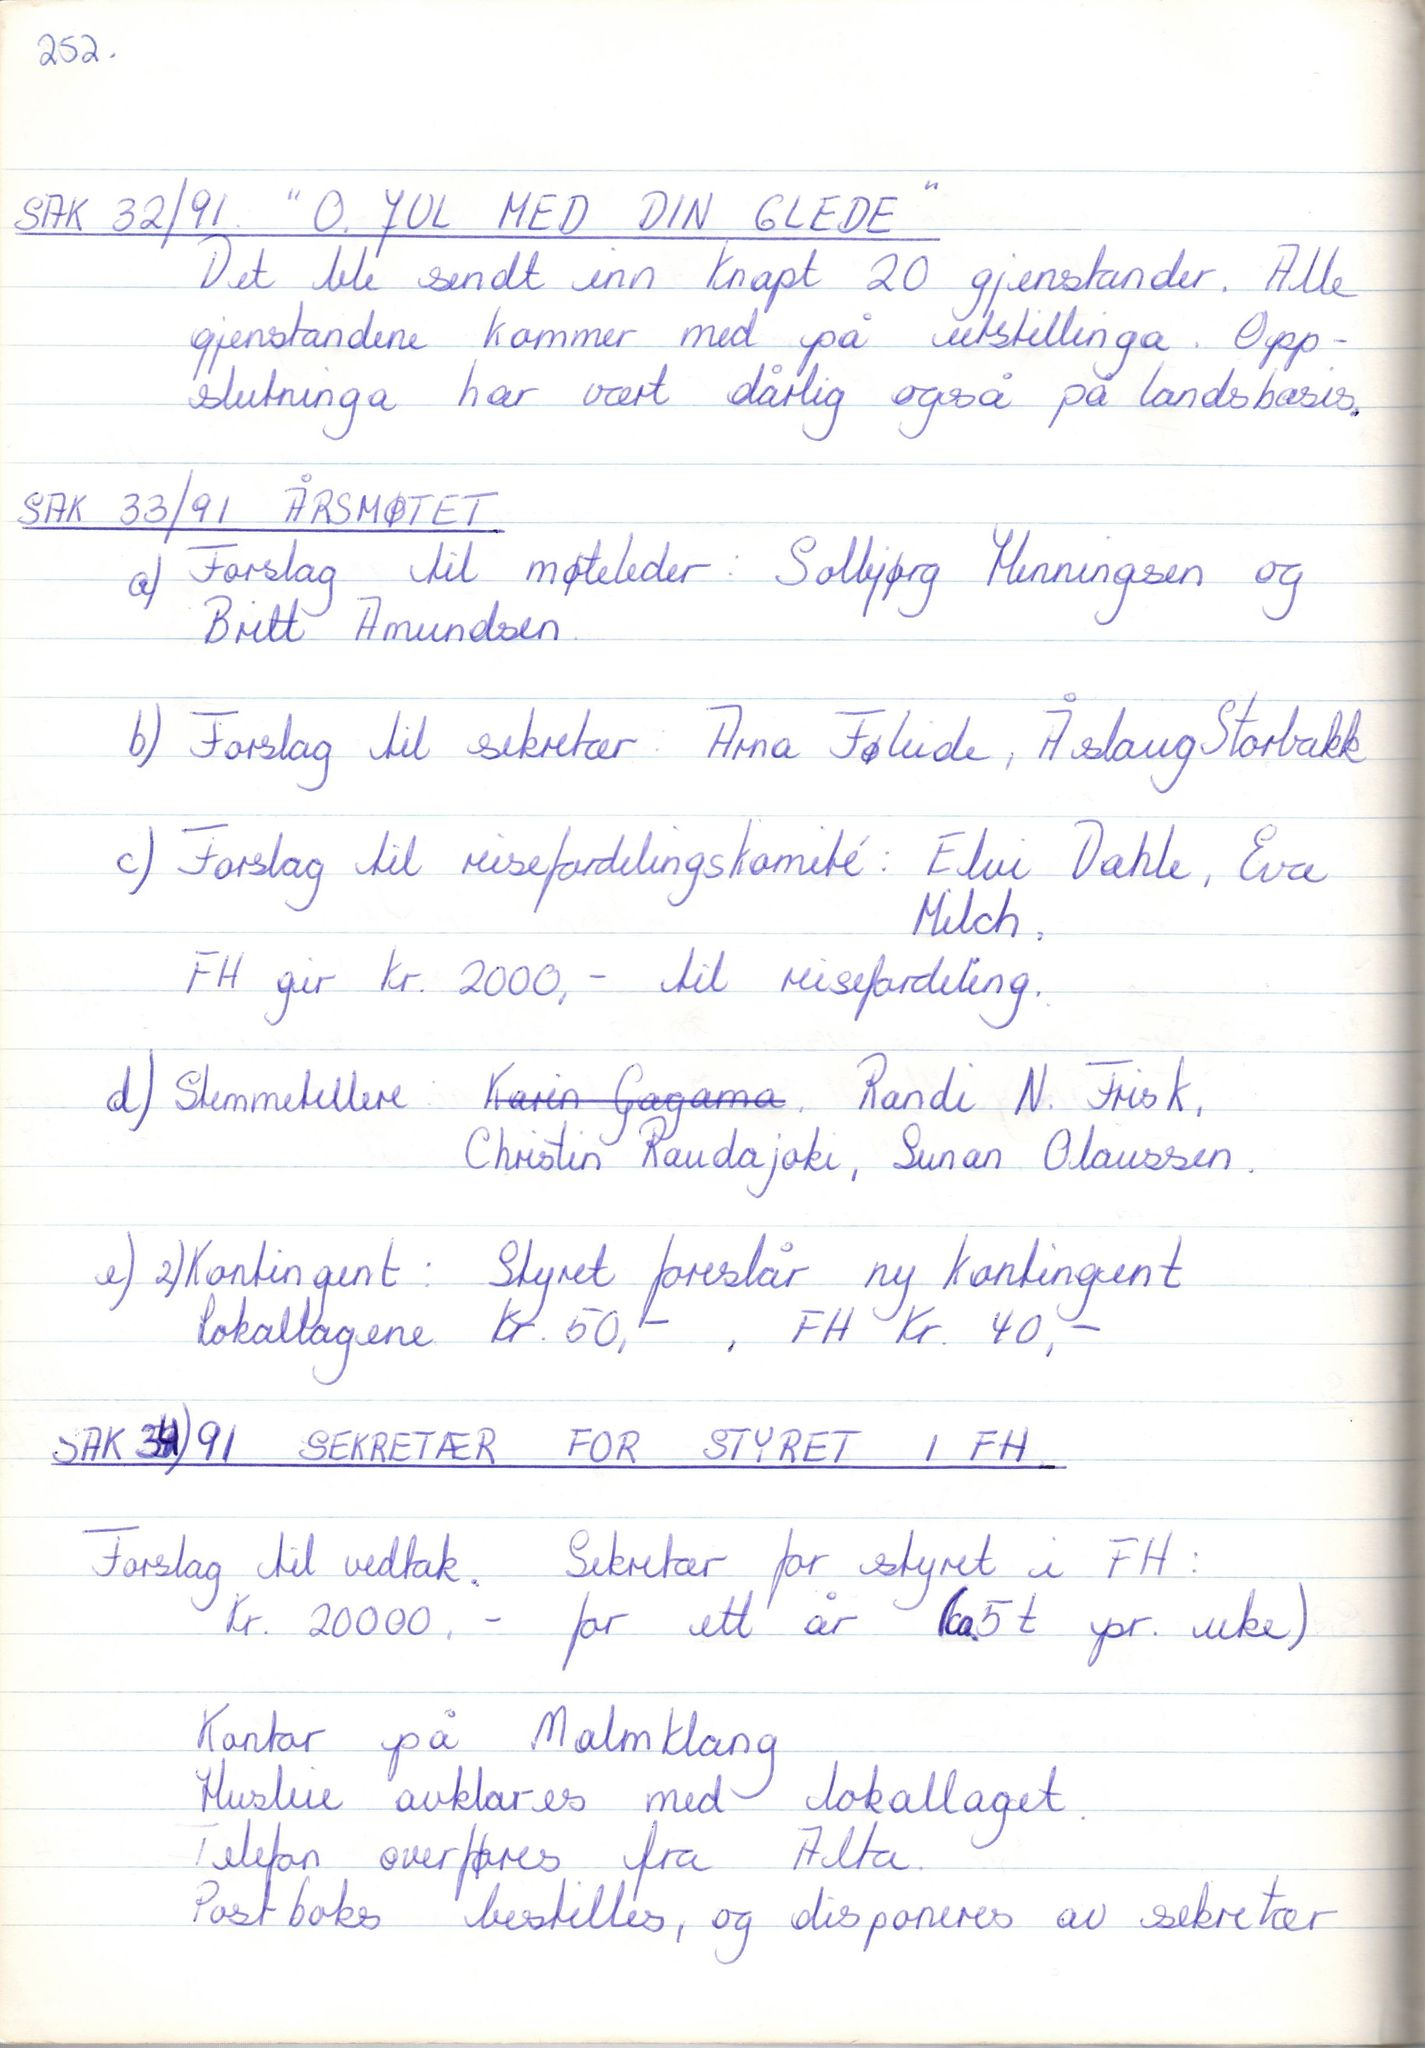 252.
SAK 32/91. "O. JUL MED DIN GLEDE"
Det ble sendt inn knapt 20 gjenstander. Alle
gjenstandene kommer med på utstillinga. Opp-
slutninga har vært dårlig også på landsbasis.
SAK 33/91 ÅRSMØTET
a) Forslag til møteleder: Solbjørg Henningsen og
Britt Amundsen.
b) Forslag til sekretær: Arna Føleide, Åslaug Storbakk
c) Forslag til reisefordelingskomité: Elvi Dahle, Eva
Milch.
FH gir kr. 2000,- til reisefordeling.
d) Stemmetellere: Karin Gagama. Randi N. Frisk,
Christin Raudajoki, Sunan Olaussen.
e) 2) Kontingent: Styret foreslår ny kontingent
lokallagene Kr. 50,- , FH Kr. 40,-
SAK 34/91 SEKRETÆR FOR STYRET I FH.
Forslag til vedtak. Sekretær for styret i FH:
Kr. 20000,- for ett år (ca. 5 t pr. uke)
Kontor på Malmklang
Husleie avklares med lokallaget.
Telefon overføres fra Alta.
Postboks bestilles, og disponeres av sekretær